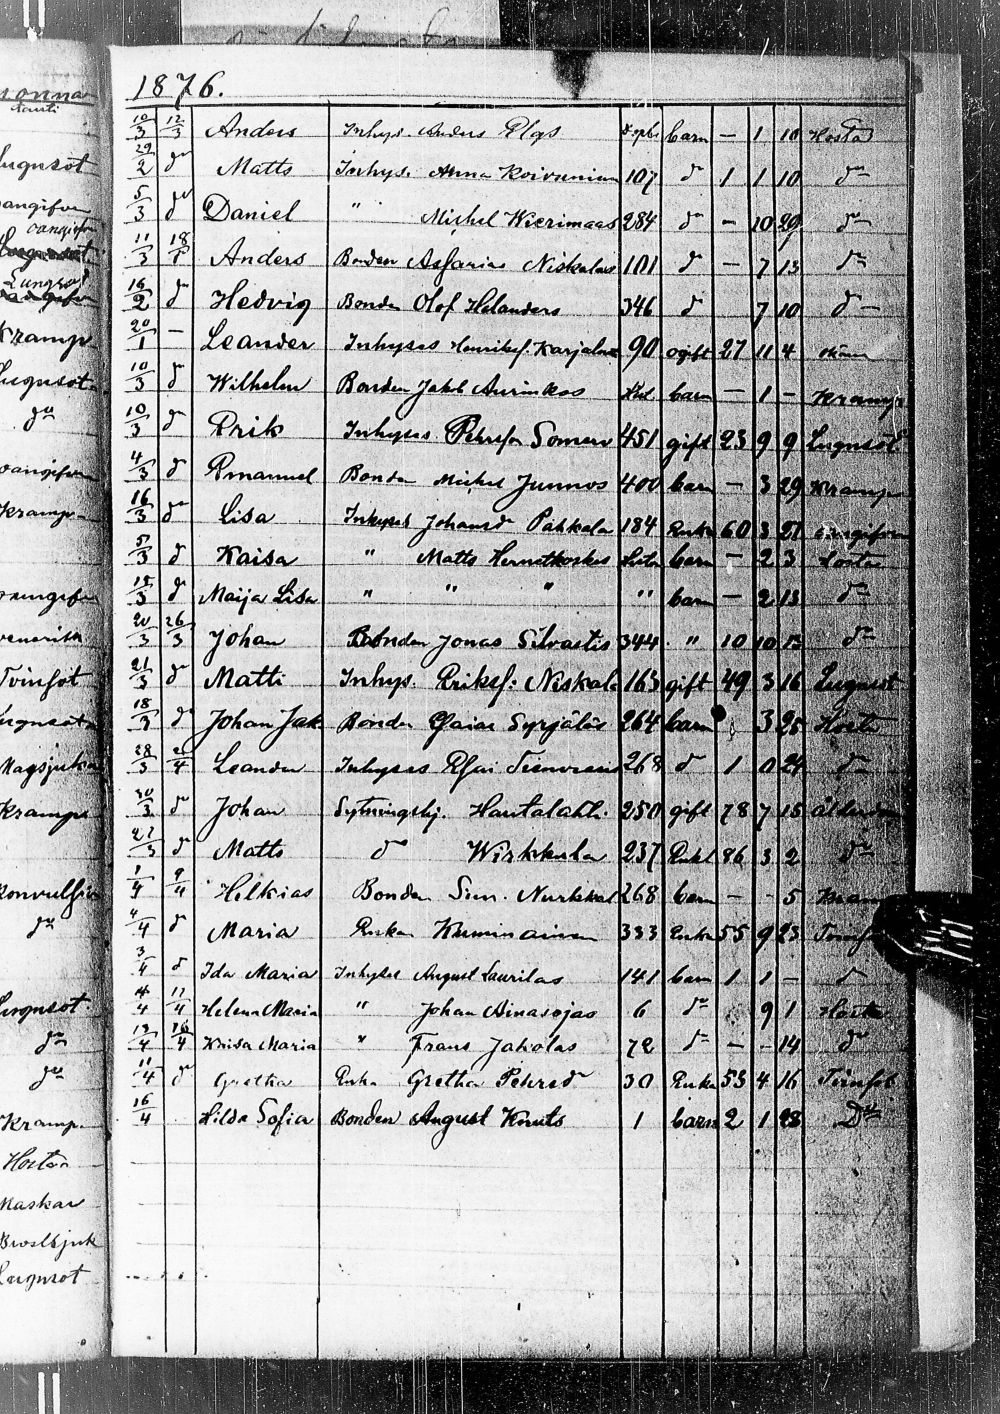 1876.
10/3 12/3 Anders Inhys. Anders barn — 1 10 Hosta
29/2 do Matts Inhys. Anna Koivunien 107 d 1 1 10 do
5/3 do Daniel " Michel 284 d — 10 29 do
11/3 18/3 Anders Bonden Niskalas 101 d — 7 13 do
16/2 d Hedvig Bonden Olof Helanders 346 d 7 10 d —
20/1 — Leander Inhyses Henriksf. 90 ogift 27 11 4
10/3 d Wilhelm Bonden Jakob barn — 1 — Kramp
10/3 d Erik Inhyses Pehrsf Somero 451 gift 23 9 9 Lugnsot
4/3 d Emanuel Bonden Michel Junnos 400 barn — 3 29 Kramp
16/3 do Lisa Inhyses Johansd Pahkala 184 Enka 60 3 27 oangifven
5/3 d Kaisa " Matts barn — 2 3 Hosta
15/3 d Maija Lisa " " " " barn — 2 13 do
20/3 26/3 Johan Bonden Jonas Silvastis 344 " 10 10 13 do
21/3 d Matti Inhys. Eriksf: Niskala 163 gift 49 3 16 Lugnsot
18/3 d Johan Jak Bonden Esaias Syrjäläs 264 barn 3 25 Hosta
28/3 2/4 Leander Inhyses 268 d 1 0 24 d
30/3 d Johan Sytningshj. Hautalahti 250 gift 78 7 15 ålderdom
27/3 d Matts d Wirkkula 237 Enkl 86 3 2 do
1/4 9/4 Helkias Bonden Sim. 268 barn — - 5
4/4 d Maria Enkan Kuminainen 333 Enka 55 9 23
3/4 d Ida Maria Inhyses August Laurilas 141 barn 1 1 — d
4/4 11/4 Helena Maria " Johan Ainasojas 6 do 9 1 Hosta
12/4 16/4 Kaisa Maria " Frans Jakolas 72 do — - 14 do
11/4 do Gretha Enka Gretha Pehrsd 30 Enka 53 4 16 Tvinsot
16/4 Hilda Sofia Bonden August Knuts 1 barn 2 1 28 Do
Lugnsot
oangifven
Kramp
Lugnsot
do
oangifven
Kramp
venerisk
Tvinsot
Lugnsot
Magsjuka
Kramp
do
Lugnsot.
do
do
Kramp.
Hosta
Maskar
Bröstsjuk
Lugnsot